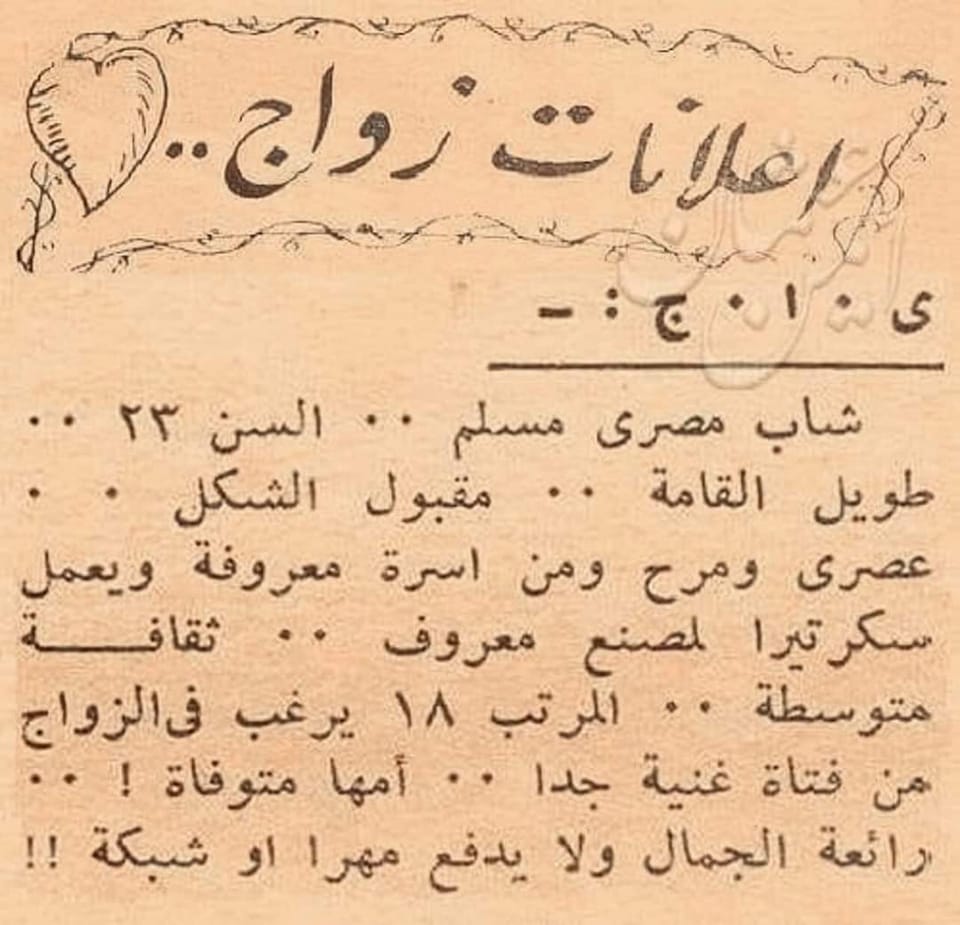 اعلانات زواج ..
ى ٠ ا ٠ ج : ـ
شاب مصرى مسلم ٠٠ السن ٢٣ ٠٠
طويل القامة ٠٠ مقبول الشكل ٠ ٠
عصرى ومرح ومن اسرة معروفة ويعمل
سكرتيرا لمصنع معروف ٠٠ ثقافـــــة
متوسطة ٠٠ المرتب ١٨ يرغب فى الزواج
من فتاة غنية جدا ٠٠ أمها متوفاة ! ٠٠
رائعة الجمال ولا يدفع مهرا او شبكة !!